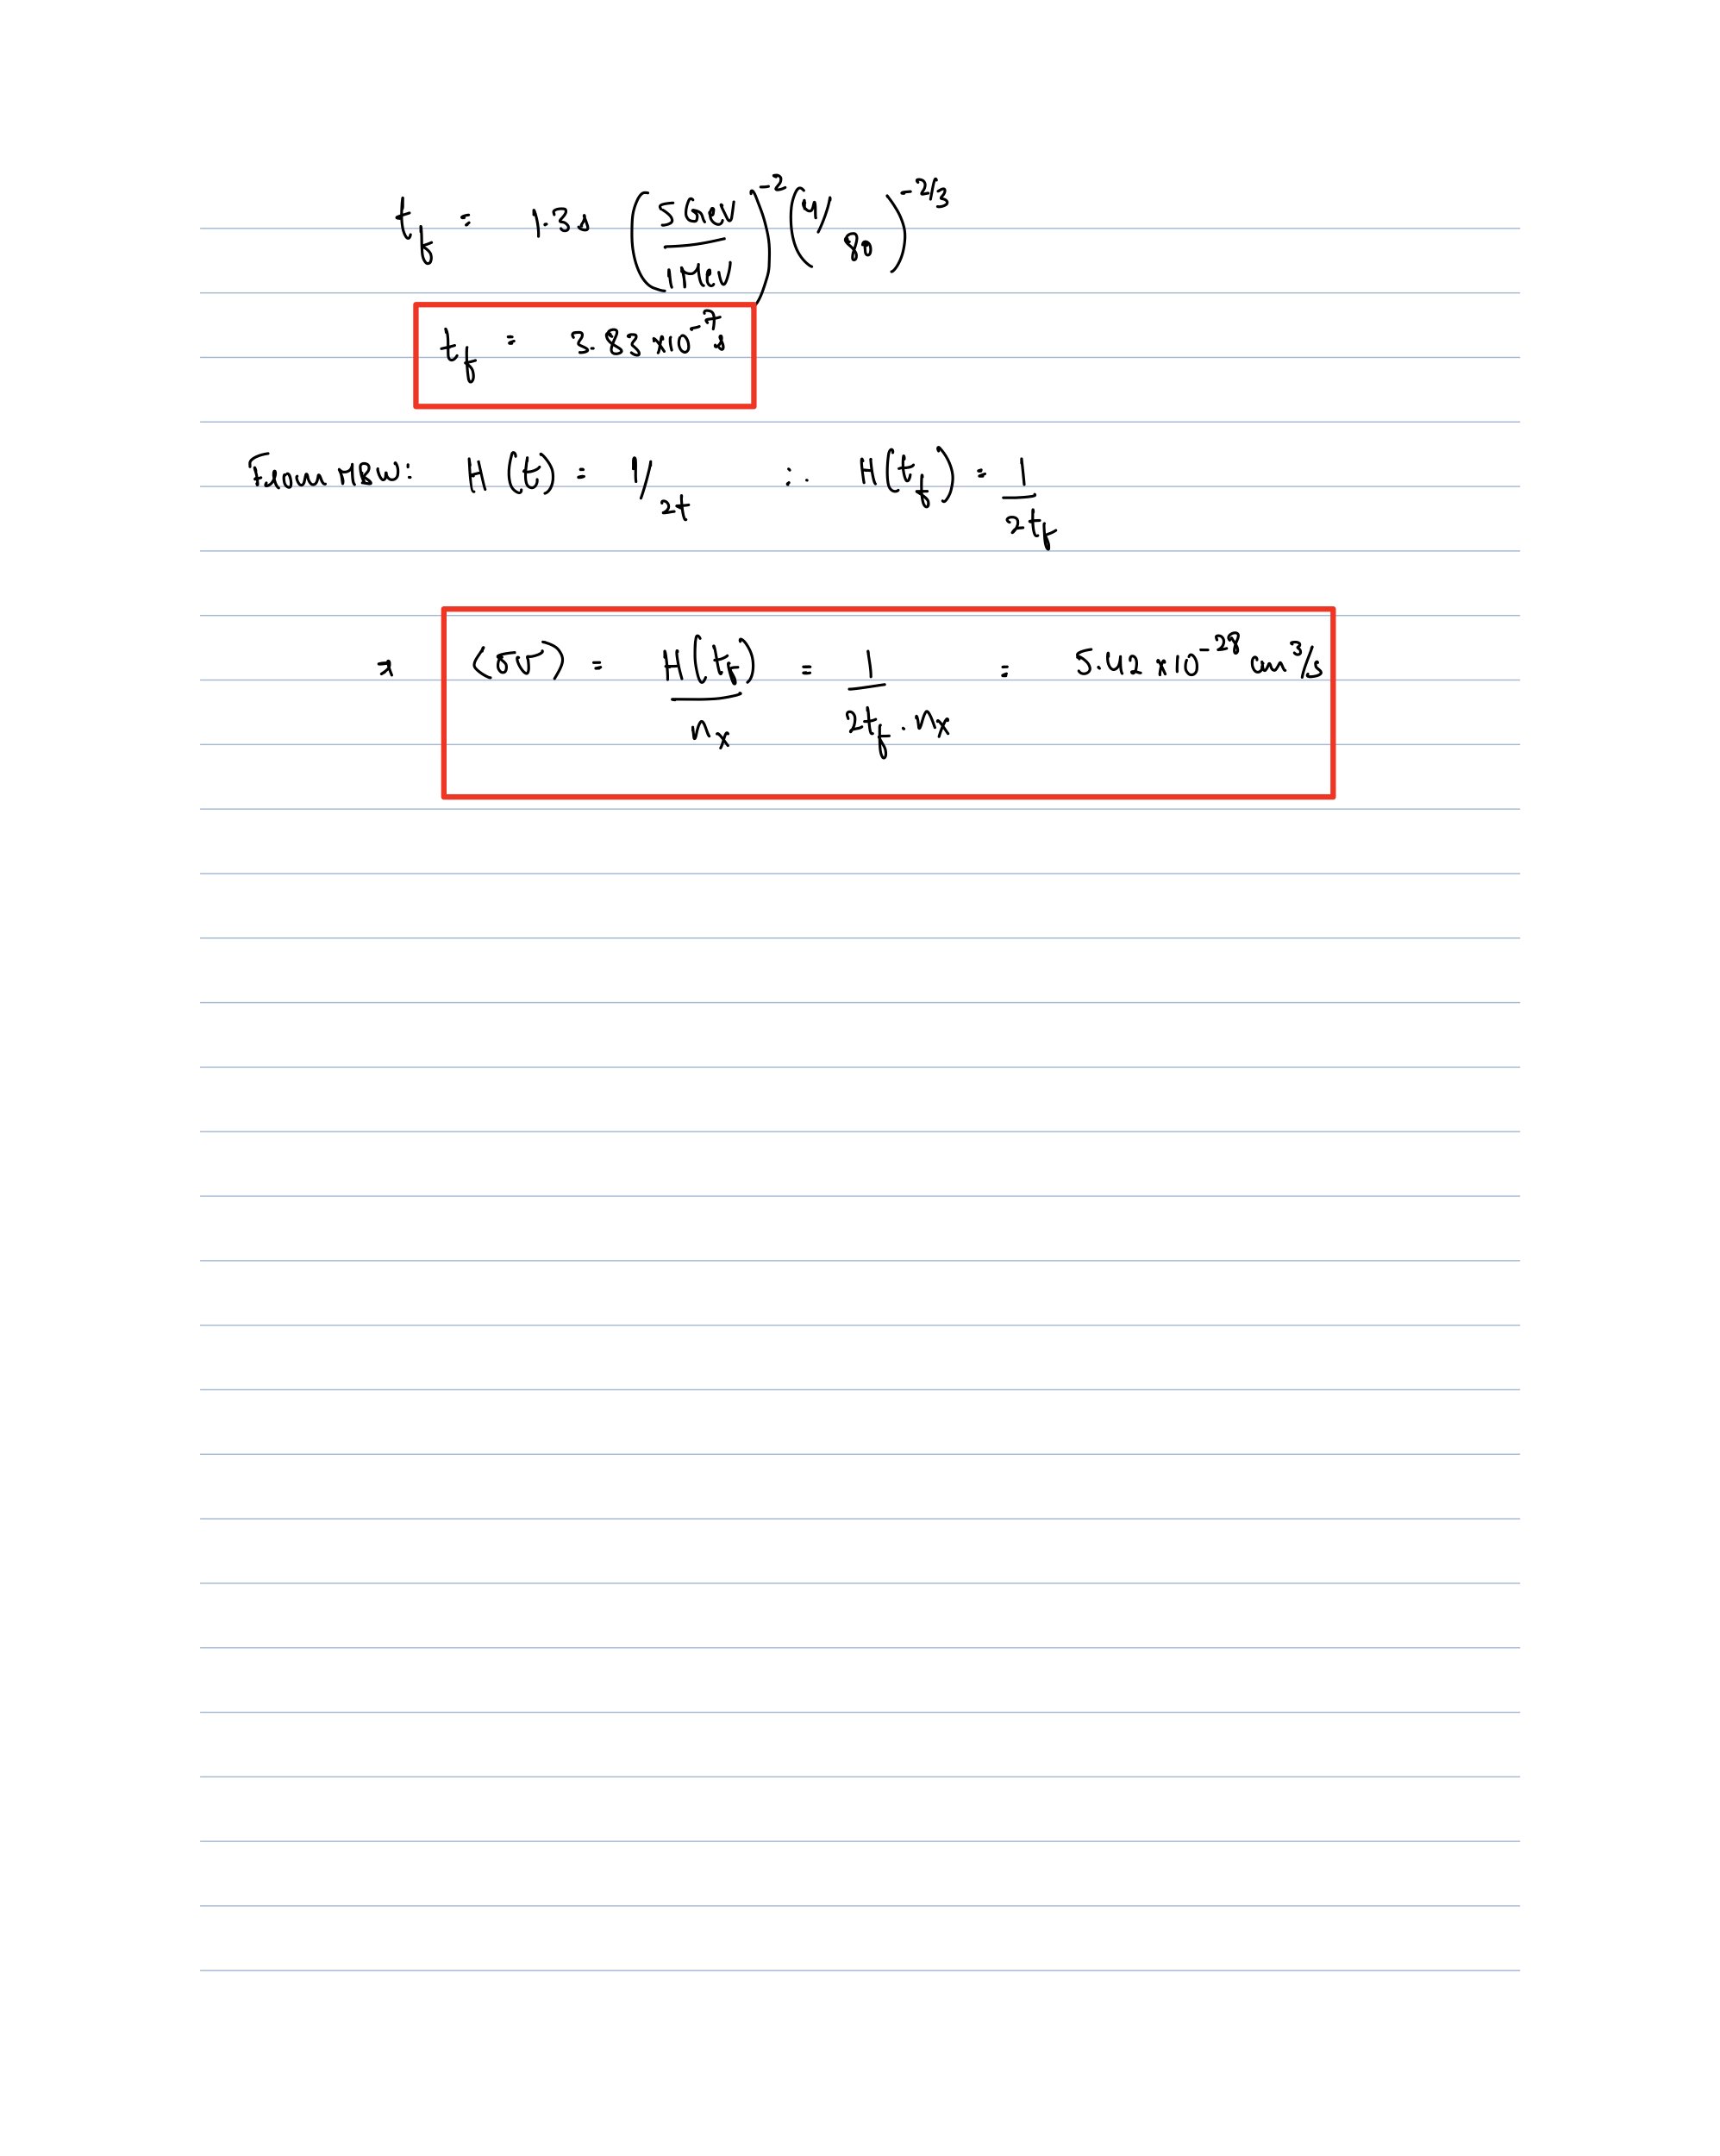 t_f = 1.3s (5 GeV / 1 MeV)^-2 (4/80)^-2/3
t_f = 3.83 x10^-7 s
From MBW: H(t) = 1/2t ∴ H(t_f) = 1/2t_f
⟨σv⟩ = H(t_f)/n_x = 1/2t_f · n_x = 5.42 x10^-28 cm^3/s